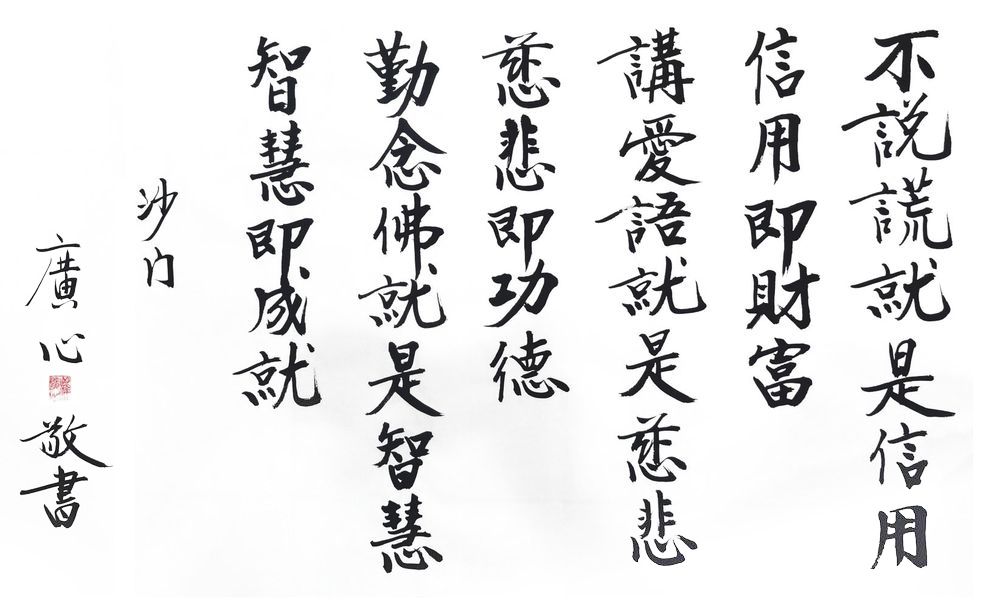 不説謊就是信用
信用即財富
講愛語就是慈悲
慈悲即功德
勤念佛就是智慧
智慧即成就
沙门
廣心敬書